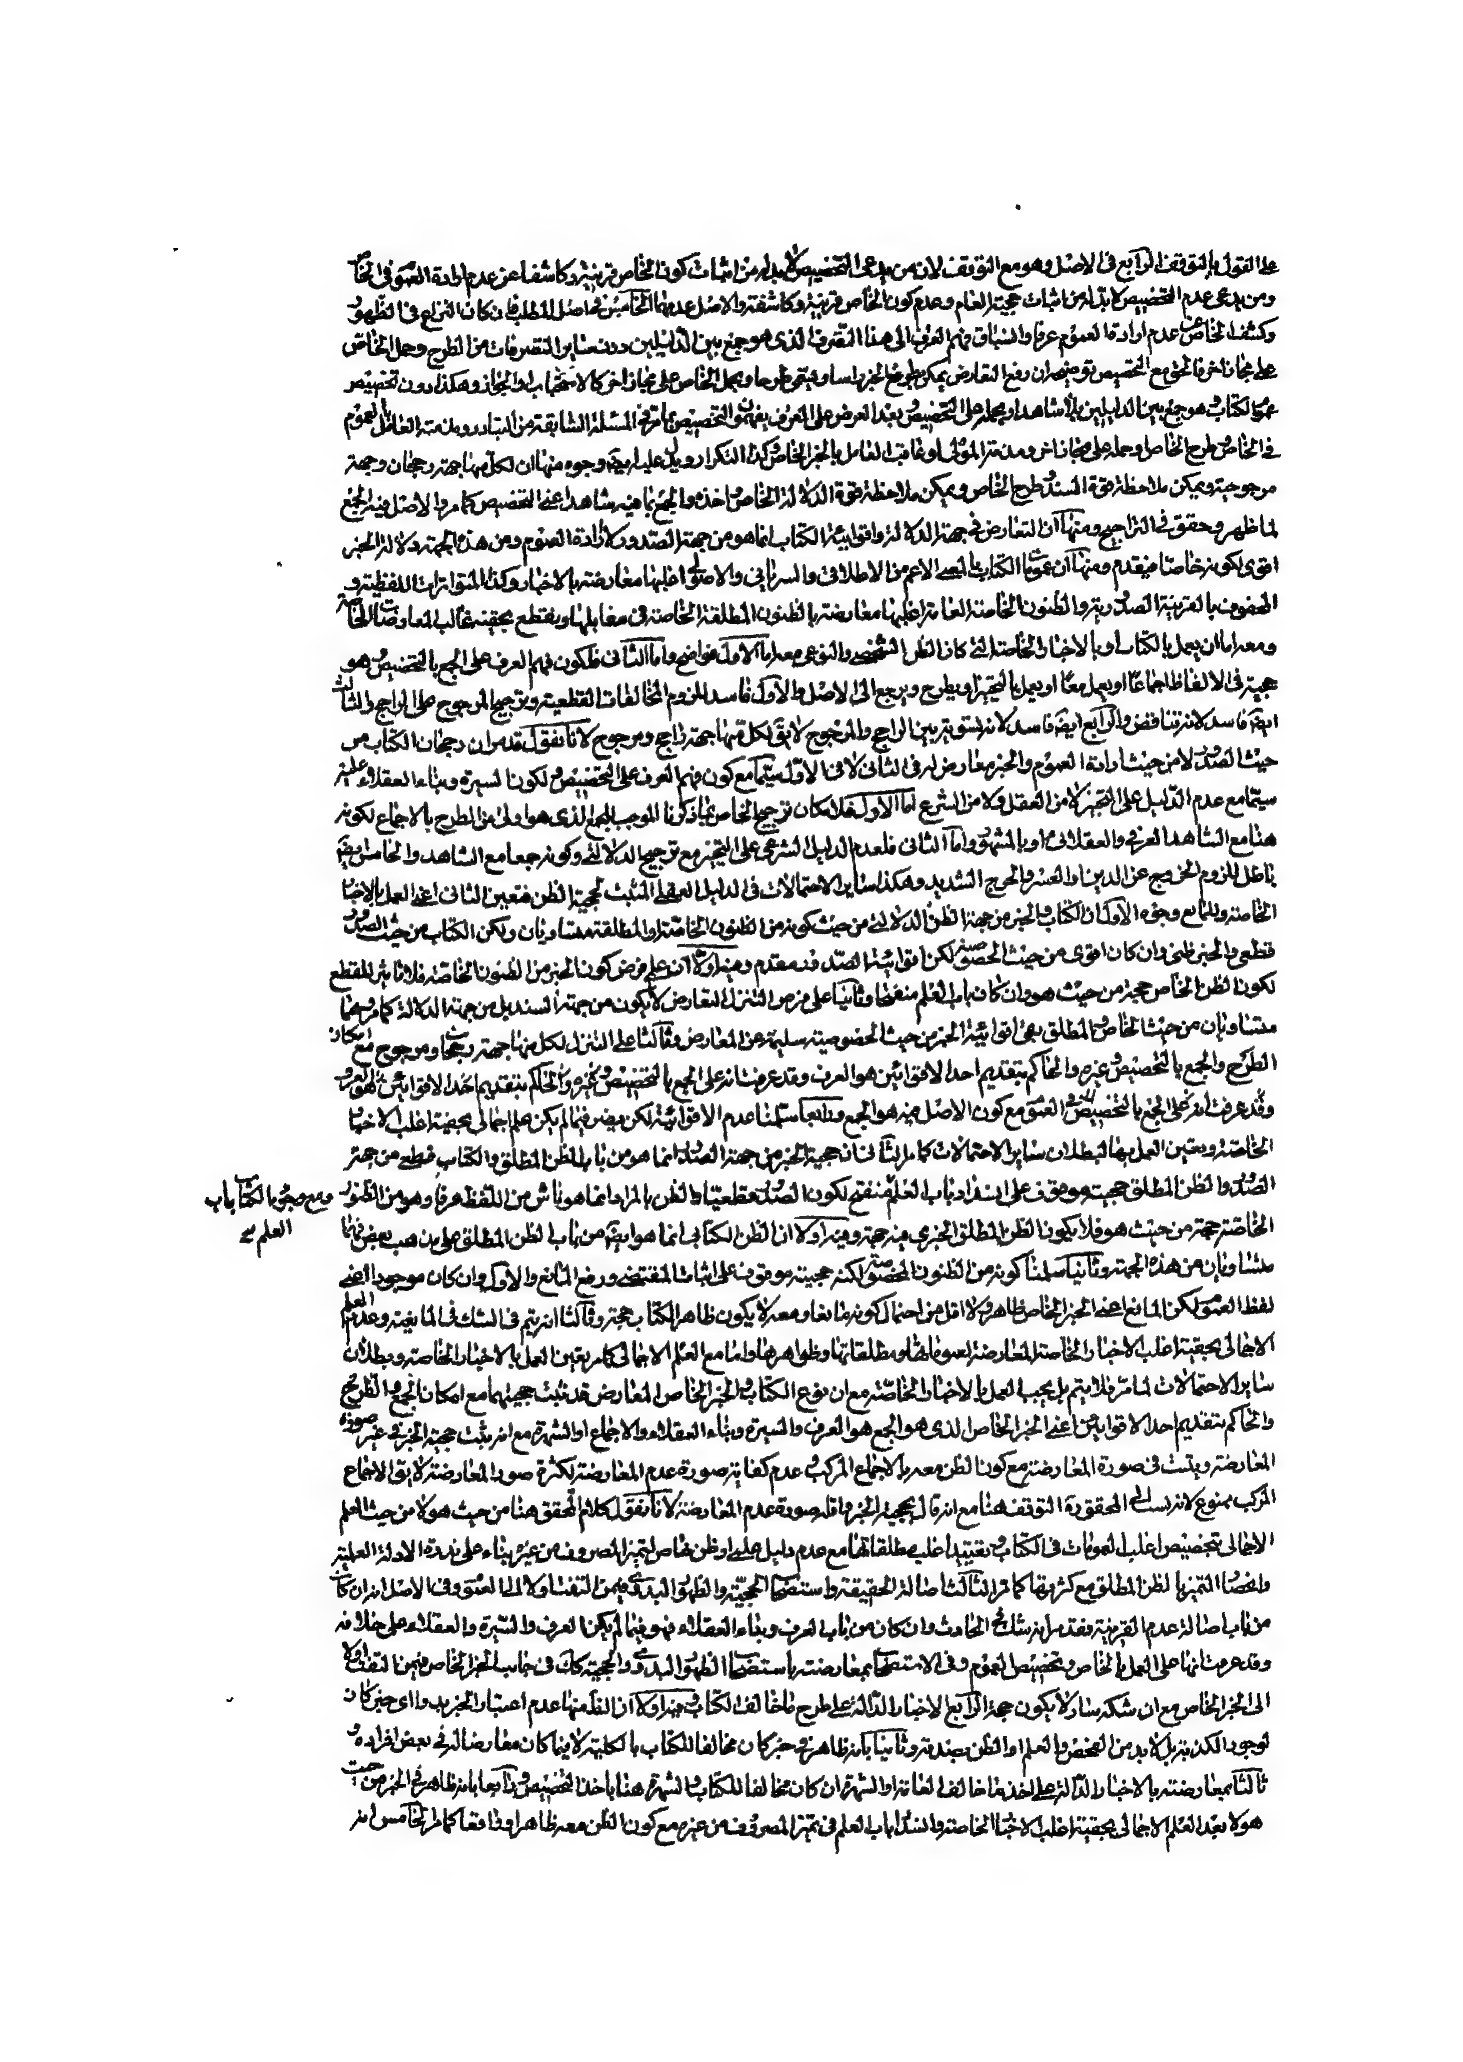 على القول بالتوقف الرابع فى الاصل وهو مع التوقف لان من يدعى التخصيص لابد له من اثبات كون الخاص قرينة وكاشفا عن عدم ارادة العموم فى الخاص
ومن يدعى عدم التخصيص لابد له من اثبات حجية العام وعدم كون الخاص قرينة وكاشفة والاصل عدمهما الخامس فى اصل المطلب فان كان النزاع فى الظهور
وكشف الخاص عن عدم ارادة العموم عرفا والسباق فهم العرف الى هذا التصرف الذى هو جمع بين الدليلين دون ساير التصرفات من الطرح وحمل الخاص
على مجاز اخر فالحق مع التخصيص توضيحه ان رفع التعارض يمكن بطرح الخبر راسا ويبقى طرحا وبحمل الخاص على مجاز اخر كالاستحباب او الجواز وهكذا دون تخصيص
عموم الكتاب وهو جمع بين الدليلين بلا شاهد او بحمله على التخصيص وبعد العرض على العرف يفهمون التخصيص لما مر فى المسئلة السابقة من التبادر ومذمته العامل بالعموم
فى الخاص وطرح الخاص او حمله على مجاز اخر ومذمة المولى لو عاقب العامل بالخبر الخاص وكذا التكرار ويدل عليه ايضا وجوه منها ان لكل منهما جهة رجحان وجهة
مرجوحية ويمكن ملاحظة قوة السند وطرح الخاص ويمكن ملاحظة قوة الدلالة الخاص واخذه والجمع بما فيه شاهد اعنى التخصيص كما مر والاصل فيه الجمع
لما ظهر وحقق فى التراجيح ومنها ان التعارض فى جهة الدلالة واقوائية الكتاب انما هو من جهة الصدور لا ارادة العموم ومن هذه الجهة دلالة الخبر
اقوى لكونه خاصا فيقدم ومنها ان عموم الكتاب بالمعنى الاعم من الاطلاقى والسريانى والاصولى اغلبها معارضته بالاخبار وكذا المتواترات اللفظية و
المحفوف بالقرينة الصدورية والظنون الخاصة العامة اغلبها معارضة بالظنون المطلقة الخاصة فى مقابلها ونقطع بحقية غالب المعارضات الخاصة
ومعه اما ان يعمل بالكتاب او بالاخبار الخاصة التى كان الظن الشخصى والنوعى معه اما الاول فواضح واما الثانى فلكون فهم العرف على الجمع بالتخصيص وهو
حجية فى الالفاظ اجماعا او يعمل معا او يعمل بالتخيير او يطرح ويرجع الى الاصل والاول فاسد للزوم المخالفات القطعية وترجيح المرجوح على الراجح والثالث
ايضا فاسد لانه تناقض والرابع ايضا فاسد لانه تسوية بين الراجح والمرجوح لا يق لكل منهما جهة راجح ومرجوح لانا نقول قد مر ان رجحان الكتاب من
حيث الصدور لا من حيث ارادة العموم والخبر معارض له فى الثانى لا فى الاول سيما مع كون فهم العرف على التخصيص ولكون السيرة وبناء العقلاء عليه
سيما مع عدم الدليل على التخيير لا من العقل ولا من الشرع اما الاول فلامكان ترجيح الخاص بما ذكرنا الموجب للجمع الذى هو اولى من الطرح بالاجماع لكونه
هنا مع الشاهد العرفى والعقلائى او بالمشهور واما الثانى فلعدم الدليل الشرعى على التخيير مع ترجيح الدلالتى وكونه جمعا مع الشاهد والخامس ايضا
باطل للزوم الخروج عن الدين او العسر والحرج الشديد وهكذا ساير الاحتمالات فى الدليل العقلى المثبت لحجية الظن فتعين الثانى اعنى العمل بالاخبار
الخاصة وللمانع وجوه الاول ان الكتاب والخبر من جهة الظن الدلالتى من حيث كونه من الظنون الخاصة او المطلقة متساويان ولكن الكتاب من حيث الصدور
قطعى والخبر ظنى وان كان اقوى من حيث الخصوصية لكن اقوائية الصدور مقدم وفيه اولا ان على فرض كون الخبر من الظنون الخاصة فلا تاثير للقطع
لكون الظن الخاص حجة من حيث هو وان كان باب العلم منفتحا وثانيا على فرض التنزل التعارض لا يكون من جهة السند بل من جهة الدلالة كما مر وهما
متساويان من حيث الخاص والمطلق بقى اقوائية الخبر من حيث الخصوصية سليمة عن المعارض وثالثا على التنزل لكل منهما جهة رجحان ومرجوح مع امكان
الطرح والجمع بالتخصيص وغيره والحاكم بتقديم احد الاقوائين هو العرف وقد عرفت انه على الجمع بالتخصيص وغيره والحاكم بتقديم احد الاقوائين هو العرف
وقد عرفت انه على الجمع بالتخصيص العموم مع كون الاصل فيه هو الجمع ورابعا سلمنا عدم الاقوائية لكن يضر فيما لم يكن علم اجمالى بحقية اغلب الاخبار
الخاصة ويعين العمل بها لبطلان ساير الاحتمالات كما مر الثانى ان حجية الخبر من جهة الصدور انما هو من باب الظن المطلق والكتاب قطعى من جهة
الصدور والظن المطلق حجيته موقوف على انسداد باب العلم منفتح لكون الصدور قطعيا والظن بالمراد انما هو ناش من اللفظ عرفا وهو من الظنون
ومع وجود الكتاب باب
العلم صح
الخاصة حجة من حيث هو فلا يكون الظن المطلق الخبرى فيه حجة وفيه اولا ان الظن الكتابى انما هو ايضا من باب الظن المطلق على مذهب بعض فهما
متساويان من هذه الجهة وثانيا سلمنا كونه من الظنون المخصوصة لكنه حجيته موقوف على اثبات المقتضى ورفع المانع والاول وان كان موجودا اعنى
لفظ العموم لكن المانع اعنى الخبر الخاص ظاهر ولا اقل من احتمال كونه مانعا ومعه لا يكون ظاهر الكتاب حجة وثالثا انه يتم فى الشك فى المانعية وعدم العلم
الاجمالى بحقية اغلب الاخبار الخاصة المعارضة لعموماتها ومطلقاتها وظواهرها واما مع العلم الاجمالى كما مر يعين العمل بالاخبار الخاصة وبطلان
ساير الاحتمالات لما مر فلا يتم بل يجب العمل بالاخبار الخاصة مع ان نوع الكتاب والخبر الخاص المعارض قد ثبت حجيتهما مع امكان الجمع والطرح
والحاكم بتقديم احد الاقوائين اعنى الخبر الخاص الذى هو الجمع هو العرف والسيرة وبناء العقلاء والاجماع او الشهرة مع انه يثبت حجية الخبر فى غير صورة
المعارضة ويثبت فى صورة المعارضة مع كون الظن معه بالاجماع المركب وعدم كفاية صورة عدم المعارضة لكثرة صور المعارضة لا يق الاجماع
المركب ممنوع لانه نسب الى المحقق ره التوقف هنا مع انه قال بحجية الخبر واقله صورة عدم المعارضة لانا نقول كلام المحقق هنا من حيث هو لا من حيث العلم
الاجمالى بتخصيص اغلب العمومات فى الكتاب وتقييد اغلب مطلقاتها مع عدم دليل علمى او ظن خاص لتميز المصروف من غيره بناء على ندرة الادلة العلمية
وانحصار التميز بالظن المطلق مع كثرتها كما مر الثالث اصالة الحقيقة واستصحاب الحجية والظهور البدوى فيمن التفت اولا الى العموم وفى الاصل انه ان كان
من باب اصالة عدم القرينة فقد مر انه شك فى الحادث وان كان من باب العرف وبناء العقلاء فهو فيما لم يكن العرف والسيرة والعقلاء على خلافه
وقد عرفت انها على العمل بالخاص وتخصيص العموم وفى الاستصحاب بمعارضته باستصحاب الظهور البدوى والحجية كك فى جانب الخبر الخاص فيمن التفت اولا
الى الخبر الخاص مع ان شكه سار لا يكون حجة الرابع الاخبار الدالة على طرح ما خالف الكتاب وفيه اولا ان الظ منها عدم اعتبار الخبر بدوا اى حين كان
لوجود الكذبة بل لابد من الفحص بالعلم او الظن بصدقه وثانيا بانه ظاهر فى خبر كان مخالفا للكتاب بالكلية لا فيما كان معارضا له فى بعض افراده و
ثالثا بمعارضته بالاخبار الدالة على اخذ ما خالف العامة او الشهرة ان كان مخالفا للكتاب والشهرة هنا باخذ التخصيص ورابعا بانه ظاهر فى الخبر من حيث
هو لا بعد العلم الاجمالى بحقية اغلب الاخبار الخاصة وانسداد باب العلم فى تميز المصروف من غيره مع كون الظن معه ظاهرا وواقعا كما مر الخامس انه